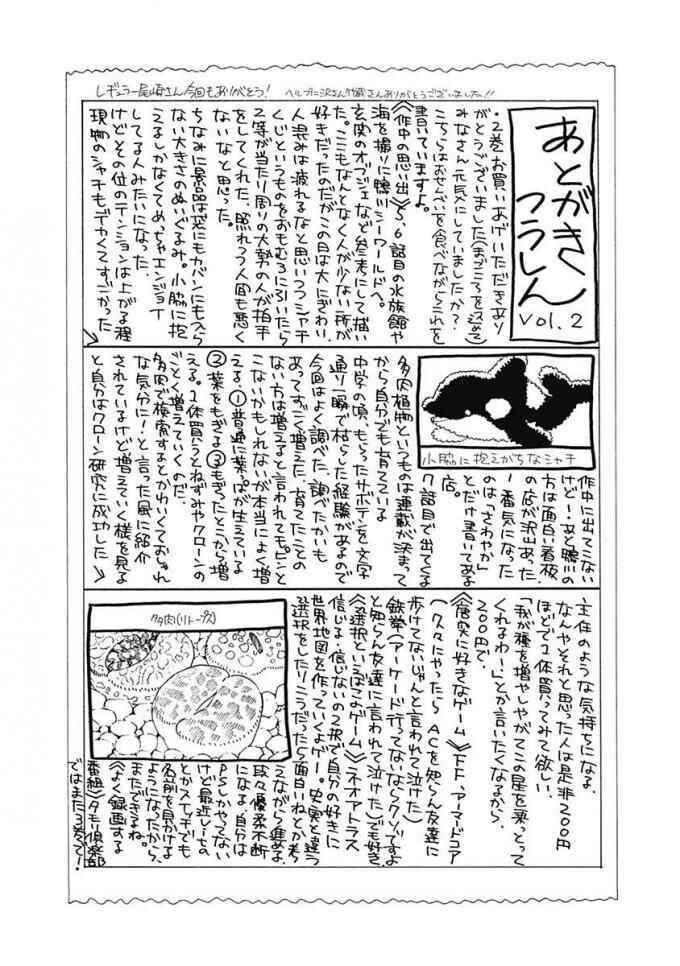 レギュラー尾崎さん今回もありがとう！
あとがき
つうしん
vol.2
・2巻お買いあげいただきあり
がとうございました(まごころを込めて)
みなさん元気にしていましたか？
こちらはおせんべいを食べながらこれを
書いていますよ。
《作中の思い出》5、6話目の水族館や
海を撮りに鴨川シーワールドへ。
玄関のオブジェなど参考にして描い
た。ここもなんとなく人が少ない所が
好きだったのだがこの日は大にぎわい。
人混みは疲れるなと思いつつシャチ
くじというものをおもむろに引いたら
2等が当たり周りの大勢の人が拍手
をしてくれた、照れつつ人間も悪く
ないなと思った。
ちなみに景品は袋にもカバンにも入ら
ない大きさのぬいぐるみ。小脇に抱
えるしかなくてめっちゃエンジョイ
してる人みたいになった
けどその位のテンションは上がる程
現物のシャチもデカくてすごかった
小脇に抱えがちなシャチ
作中に出てこない
けど！あと鴨川の
方は面白い看板
の店が沢山あった
一番気になった
のは「さわやか」
とだけ書いてある
店。
7話目で出てくる
多肉植物というものは連載が決まって
から自分でも育てている
中学の頃、もらったサボテンを文字
通り一瞬で枯らした経験があるので
今回はよく調べた、調べたかいも
あってすごく増えた、育てたことの
ない方は増えると言われてもピンと
こないかもしれないが本当によく増
える。①普通に葉っぱが生えている
②葉をもぎる③もぎったとこから増
える。1体買うとねずみやクローンの
ごとく増えていくのだ。
多肉で検索するとかわいくておしゃれ
な気分に！と言った風に紹介
されているけど増えていく様を見る
と自分はクローン研究に成功した
主任のような気持ちになる。
なんやそれと思った人は是非200円
ほどで1体買ってみて欲しい、
「我が種を増やしやがてこの星を乗っとって
くれるわー」とか言いたくなるから。
200円で。
《唐突に好きなゲーム》FF、アーマードコア
(久々にやったら ACを知らん友達に
歩けてないじゃんと言われて泣けた)
鉄拳(アーケード行ってないならクソですよ
と知らん友達に言われて泣けた)でも好き。
《選択といえばこのゲーム》《ネオアトラス
信じる・信じないの2択で自分の好きに
世界地図を作っていくよゲー。史実と違う
選択をしたりこうだったら面白いねとか考
えながら進める。
段々優柔不断
になる。自分は
PSしかやってない
けど最近レーもの
とかスイッチでも
名前を見かけよ
うになったから、
またできるね。
《よく録画する
番組》タモリ倶楽部
ではまた3巻で！
多肉(リトープス)